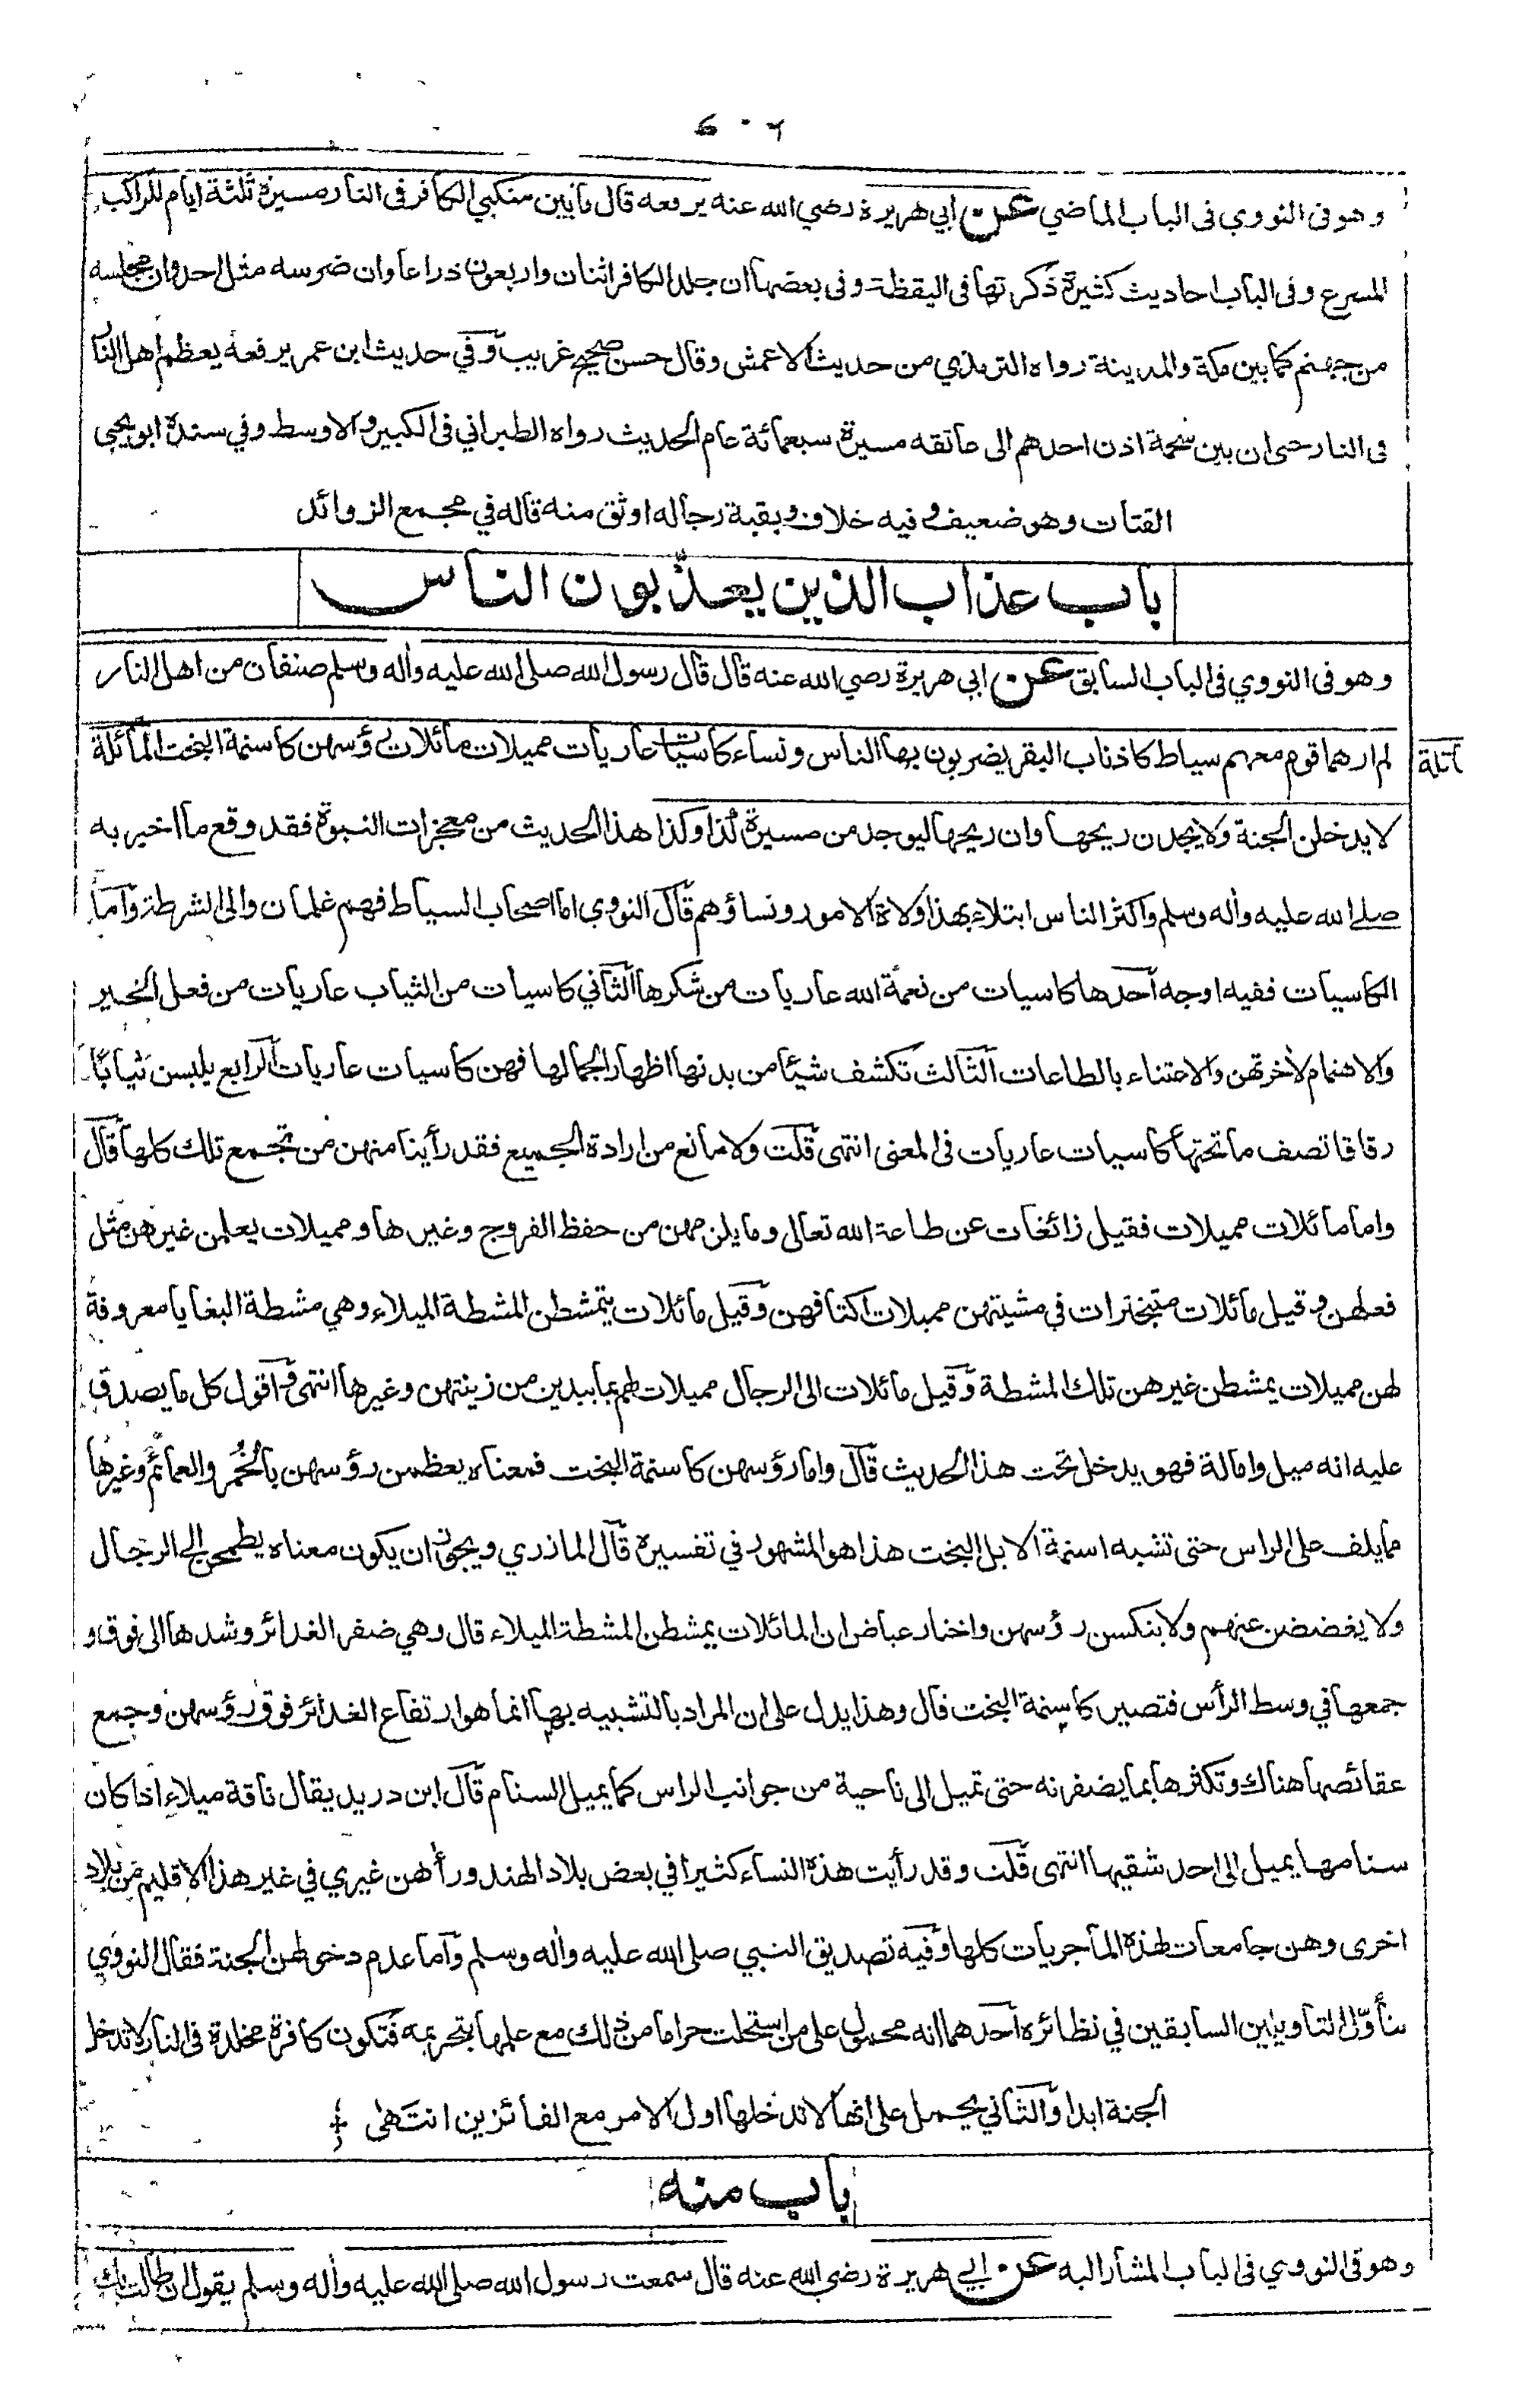 ٦٠٦
وهو فى النووي فى الباب الماضي عن ابي هريرة رضي الله عنه يرفعه قال ما بين منكبي الكافر فى النار مسيرة ثلثة ايام للراكب
المسرع وفى الباب احاديث كثيرة ذكرتها فى اليقظة وفى بعضها ان جلد الكافر اثنان واربعون ذراعا وان ضرسه مثل احد وان مجلسه
من جهنم كما بين مكة والمدينة رواه الترمذي من حديث الاعمش وقال حسن صحيح غريب وفي حديث ابن عمر يرفعه يعظم اهل النار
فى النار حتى ان بين شحمة اذن احدهم الى عاتقه مسيرة سبعمائة عام الحديث رواه الطبراني فى الكبير والاوسط وفي سنده ابو يحيى
القتات وهو ضعيف وفيه خلاف وبقية رجاله اوثق منه قاله في مجمع الزوائد
باب عذاب الذين يعذّبون الناس
وهو فى النووي فى الباب السابق عن ابي هريرة رضي الله عنه قال قال رسول الله صلى الله عليه واله وسلم صنفان من اهل النار
لم ارهما قوم معهم سياط كاذناب البقر يضربون بها الناس ونساء كاسيات عاريات مميلات مائلات رؤسهن كاسنمة البخت المائلة
لا يدخلن الجنة ولا يجدن ريحها وان ريحها ليوجد من مسيرة كذا وكذا هذا الحديث من معجزات النبوة فقد وقع ما اخبر به
صلى الله عليه واله وسلم واكثر الناس ابتلاء بهذا ولاة الامور ونساؤهم قال النووي اما اصحاب السياط فهم غلمان والى الشرطة واما
الكاسيات ففيه اوجه احدها كاسيات من نعمة الله عاريات من شكرها الثاني كاسيات من الثياب عاريات من فعل الخير
والاهتمام لأخرتهن والاعتناء بالطاعات الثالث تكشف شيئا من بدنها اظهارا لجمالها فهن كاسيات عاريات الرابع يلبسن ثيابا
رقاقا تصف ما تحتها كاسيات عاريات فى المعنى انتهى قلت ولا مانع من ارادة الجميع فقد رأينا منهن من تجمع تلك كلها قال
واما مائلات مميلات فقيل زائغات عن طاعة الله تعالى وما يلزمهن من حفظ الفروج وغيرها ومميلات يعلمن غيرهن مثل
فعلهن وقيل مائلات متبخترات في مشيتهن مميلات اكتافهن وقيل مائلات يتمشطن المشطة الميلاء وهي مشطة البغايا معروفة
لهن مميلات يمشطن غيرهن تلك المشطة وقيل مائلات الى الرجال مميلات لهم بما يبدين من زينتهن وغيرها انتهى واقول كل ما يصدق
عليه انه ميل وامالة فهو يدخل تحت هذا الحديث قال واما رؤسهن كاسنمة البخت فمعناه يعظمن رؤسهن بالخُمُر والعمائم وغيرها
مما يلف على الراس حتى تشبه اسنمة الابل البخت هذا هو المشهور في تفسيره قال المازري ويجوز ان يكون معناه يطمحن الى الرجال
ولا يغضضن عنهم ولا ينكسن رؤسهن واختار عياض ان المائلات يمشطن المشطة الميلاء قال وهي ضفر الغدائر وشدها الى فوق و
جمعها في وسط الرأس فتصير كاسنمة البخت قال وهذا يدل على ان المراد بالتشبيه بها انما هو ارتفاع الغدائر فوق رؤسهن وجمع
عقائصها هناك وتكثرها بما يضفرنه حتى تميل الى ناحية من جوانب الراس كما يميل السنام قال ابن دريد يقال ناقة ميلاء اذا كان
سنامها يميل الى احد شقيها انتهى قلت وقد رأيت هذه النساء كثيرا في بعض بلاد الهند ورأهن غيري في غير هذا الاقليم من بلاد
اخرى وهن جامعات لهذه الماجريات كلها وفيه تصديق النبي صلى الله عليه واله وسلم واما عدم دخولهن الجنة فقال النووي
يتأوّل التاويلين السابقين في نظائره احدهما انه محمول على من استحلت حراما من ذلك مع علمها بتحريمه فتكون كافرة مخلدة فى النار لا تدخل
الجنة ابدا والثاني يحمل على انها لا تدخلها اول الامر مع الفائزين انتهى
باب منه
وهو فى النووي فى الباب المشار اليه عن ابي هريرة رضي الله عنه قال سمعت رسول الله صلى الله عليه واله وسلم يقول ان طالت بك